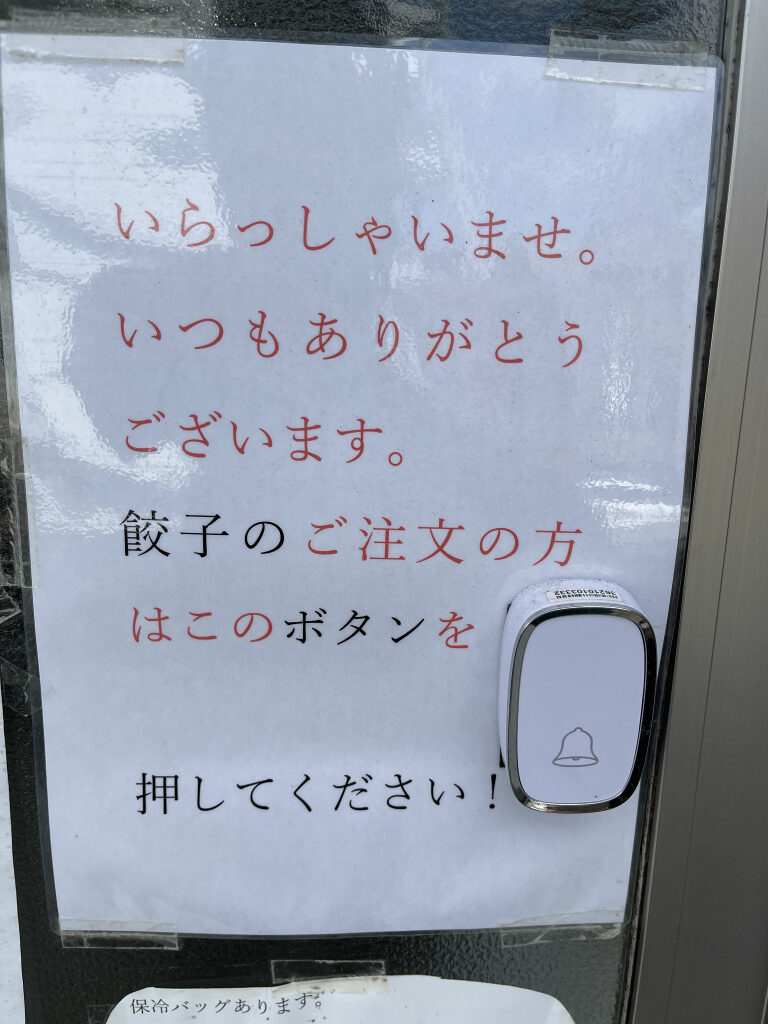 いらっしゃいませ。
いつもありがとう
ございます。
餃子のご注文の方
はこのボタンを
押してください！
3621010332
保冷バッグあります。